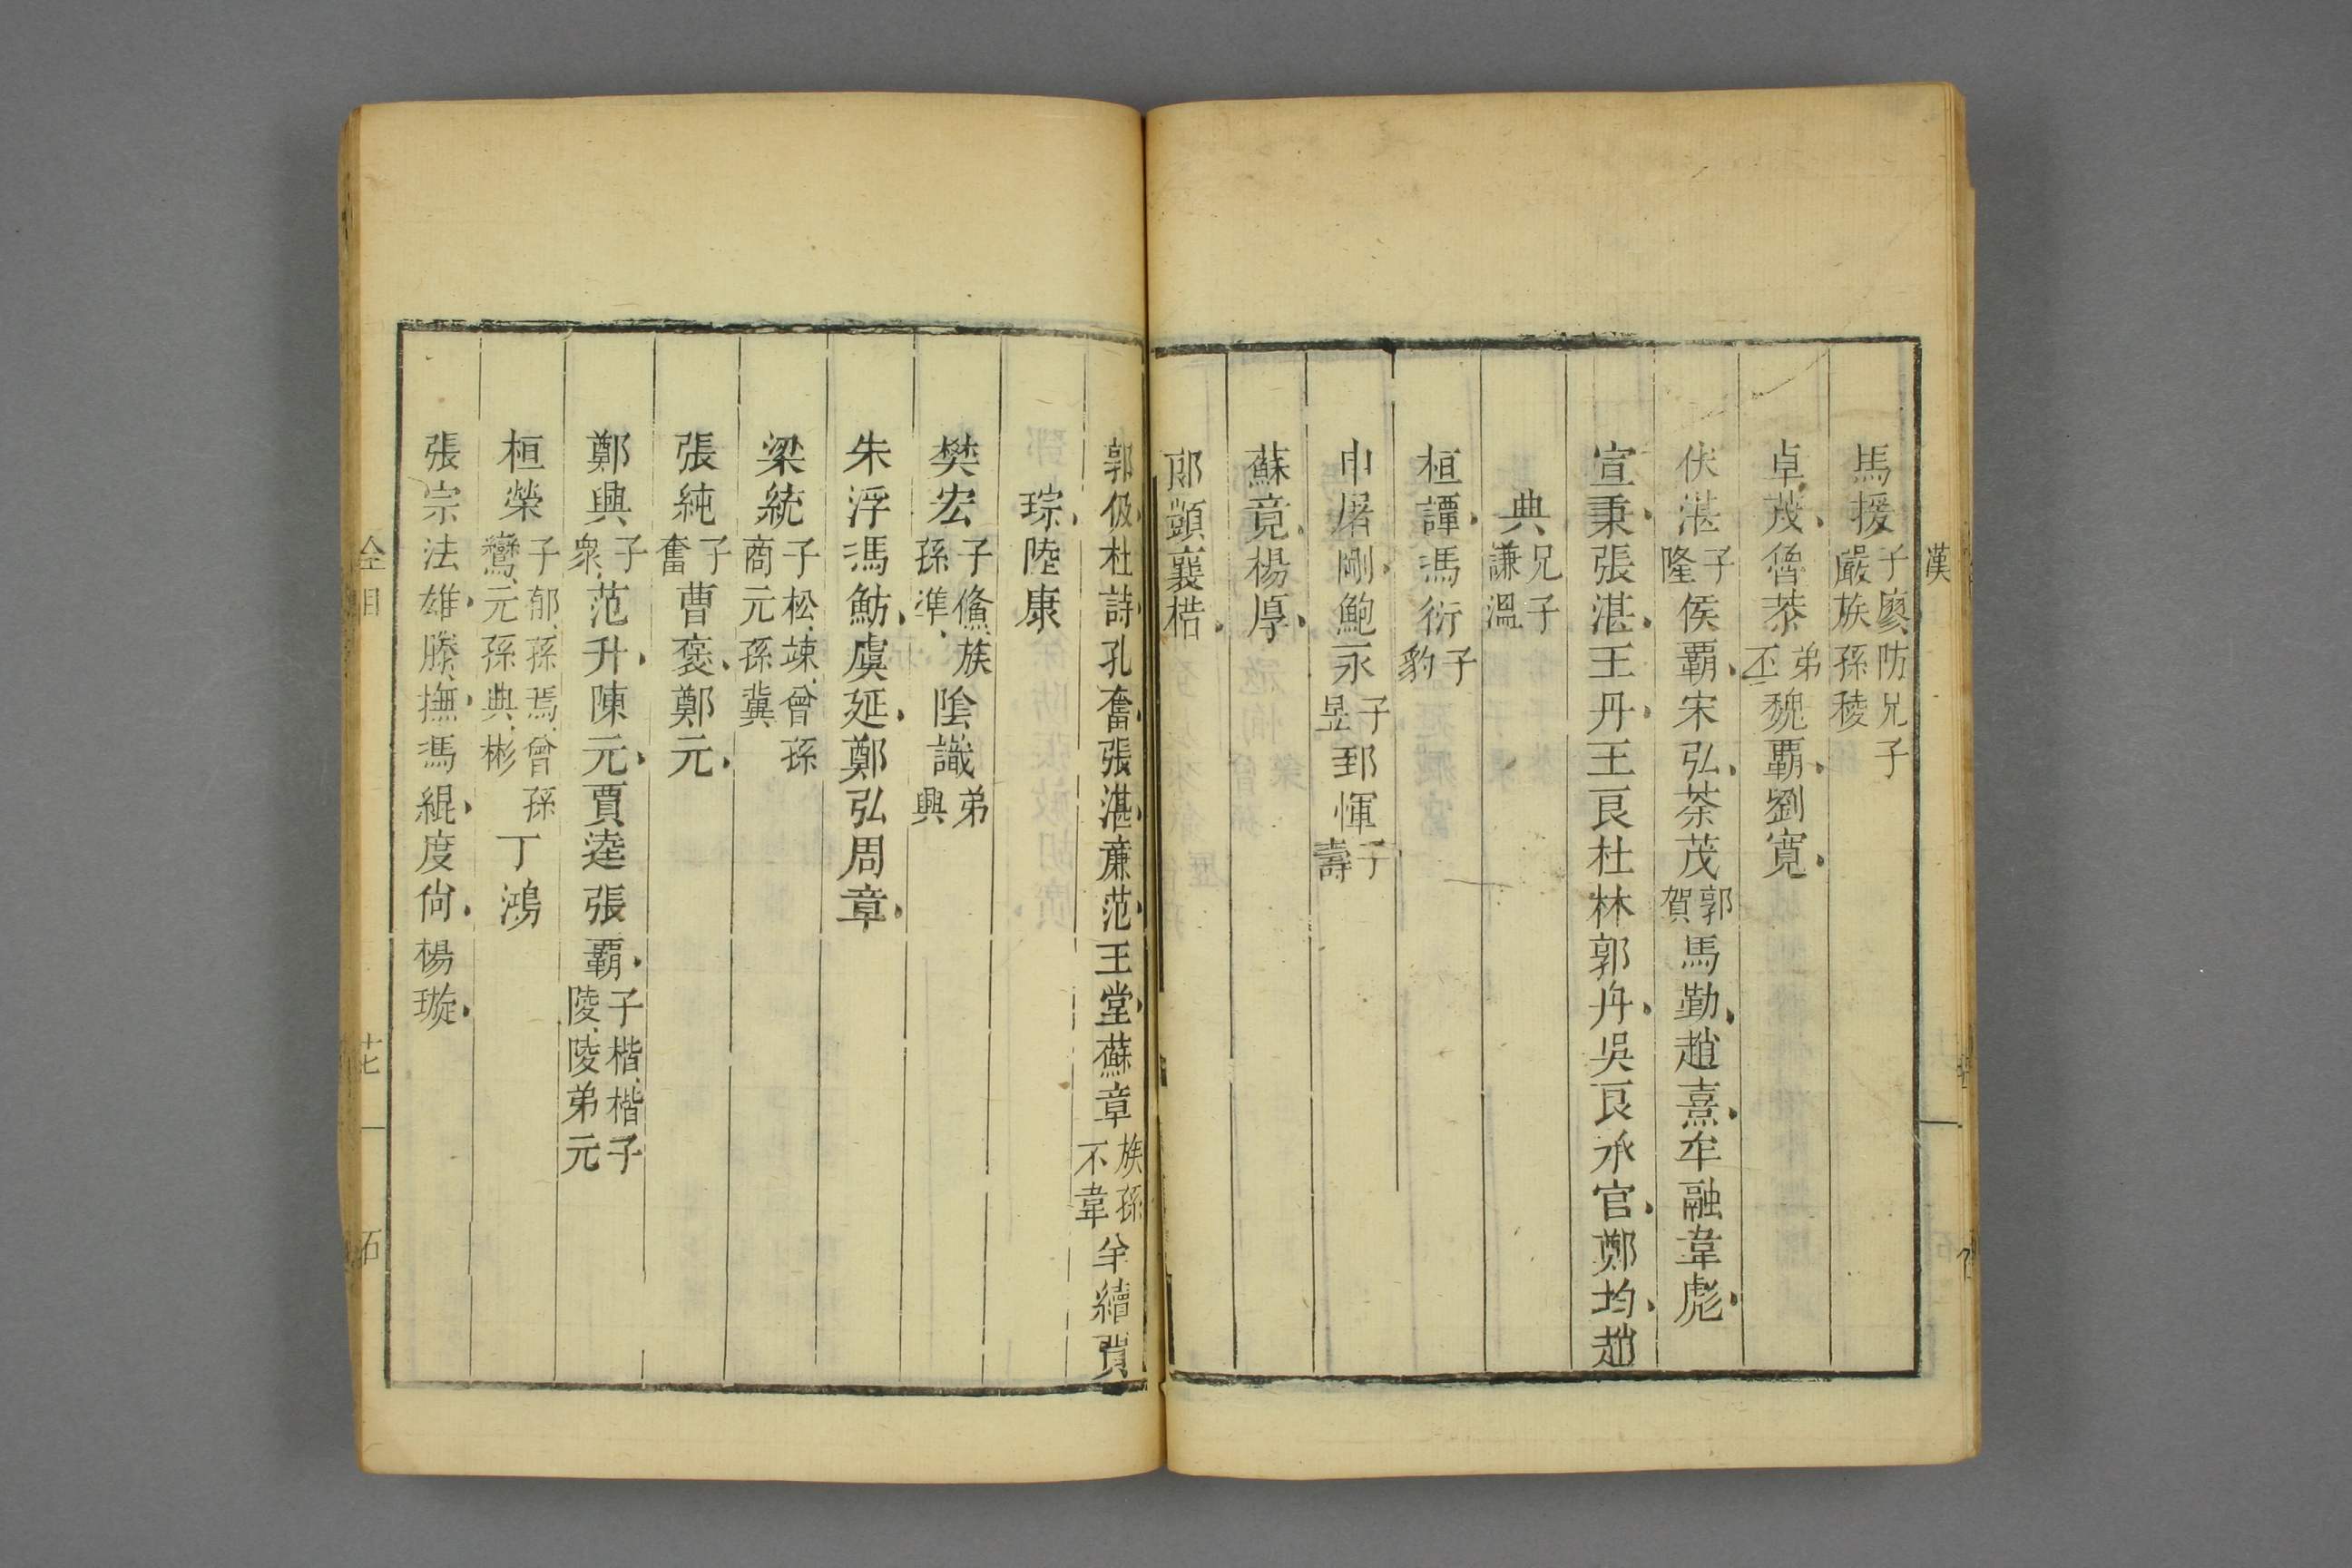 漢
馬援子廖防兄子嚴族孫稜
卓茂魯恭弟丕魏霸劉寬
伏湛子隆侯霸宋弘蔡茂郭賀馬勤趙熹牟融韋彪
宣秉張湛王丹王良杜林郭丹吳良承官鄭均趙
典兄子謙溫
桓譚馮衍子豹
申屠剛鮑永子昱郅惲子壽
蘇竟楊厚
郎顗襄楷
郭伋杜詩孔奮張湛廉范王堂蘇章族孫不韋羊續賈
琮陸康
樊宏子鯈族孫準陰識弟興
朱浮馮魴虞延鄭弘周章
梁統子松竦曾孫商元孫冀
張純子奮曹褒鄭元
鄭興子衆范升陳元賈逵張霸子楷楷子陵陵弟元
桓榮子郁孫焉曾孫鸞元孫典彬丁鴻
張宗法雄滕撫馮緄度尙楊璇
仝目